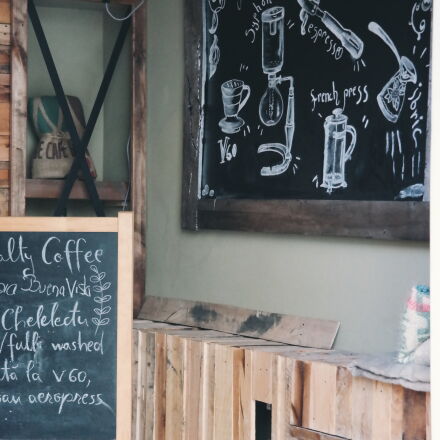 syphon
espresso
french press
V60
ibric
E CAFE
alty Coffee
Buena Vista
Chelelectu
/fully washed
tă la V60,
sau aeropress